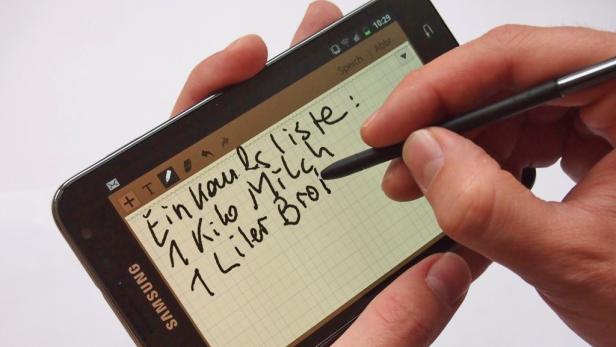 10:29
Speich. Abbr.
T
Einkaufsliste:
1 Kilo Milch
1 Liter Brot
SAMSUNG